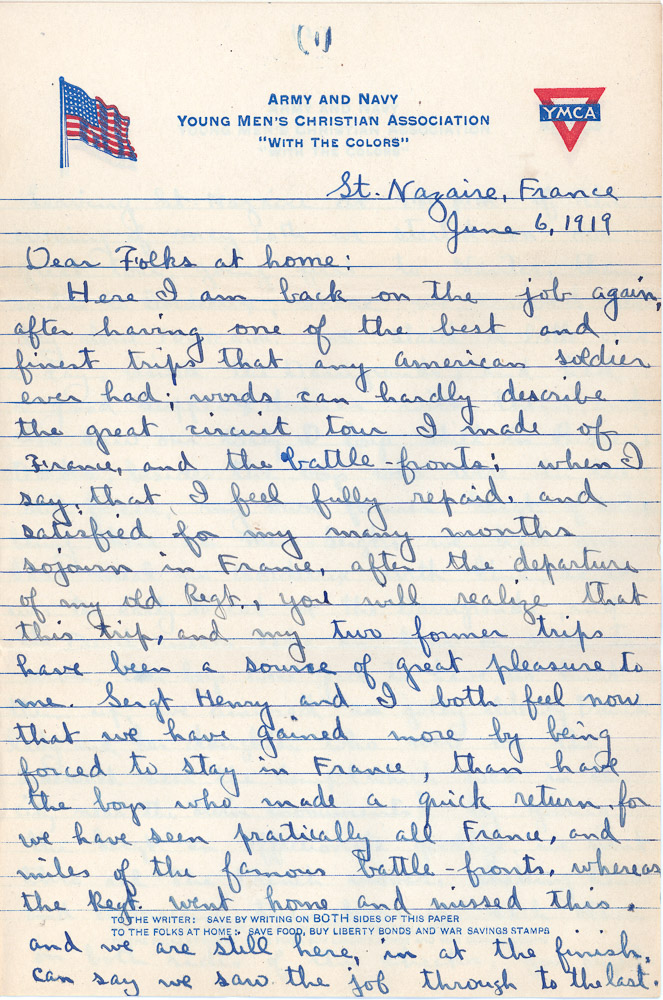 (1)
ARMY AND NAVY
YOUNG MEN'S CHRISTIAN ASSOCIATION
"WITH THE COLORS"
YMCA
St. Nazaire, France
June 6, 1919
Dear Folks at home:
Here I am back on the job again,
after having one of the best and
finest trips that any American soldier
ever had; words can hardly describe
the great circuit tour I made of
France, and the battle-fronts; when I
say, that I feel fully repaid, and
satisfied for my many months
sojourn in France, after the departure
of my old Regt., you will realize that
this trip, and my two former trips
have been a source of great pleasure to
me. Sergt Henry and I both feel now
that we have gained more by being
forced to stay in France, than have
the boys who made a quick return, for
we have seen practically all France, and
miles of the famous battle-fronts, whereas
the Regt. went home and missed this,
TO THE WRITER: SAVE BY WRITING ON BOTH SIDES OF THIS PAPER
TO THE FOLKS AT HOME: SAVE FOOD, BUY LIBERTY BONDS AND WAR SAVINGS STAMPS
and we are still here, in at the finish,
can say we saw the job through to the last.